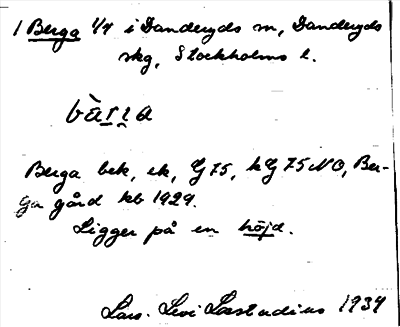 1 Berga 1/4 i Danderyds sn, Danderyds
skg, Stockholms l.
bärɩa
Berga bek, ek, G 75, kG 75 NO, Ber-
ga gård kb 1929.
Ligger på en höjd.
Lars-Levi Læstadius 1934